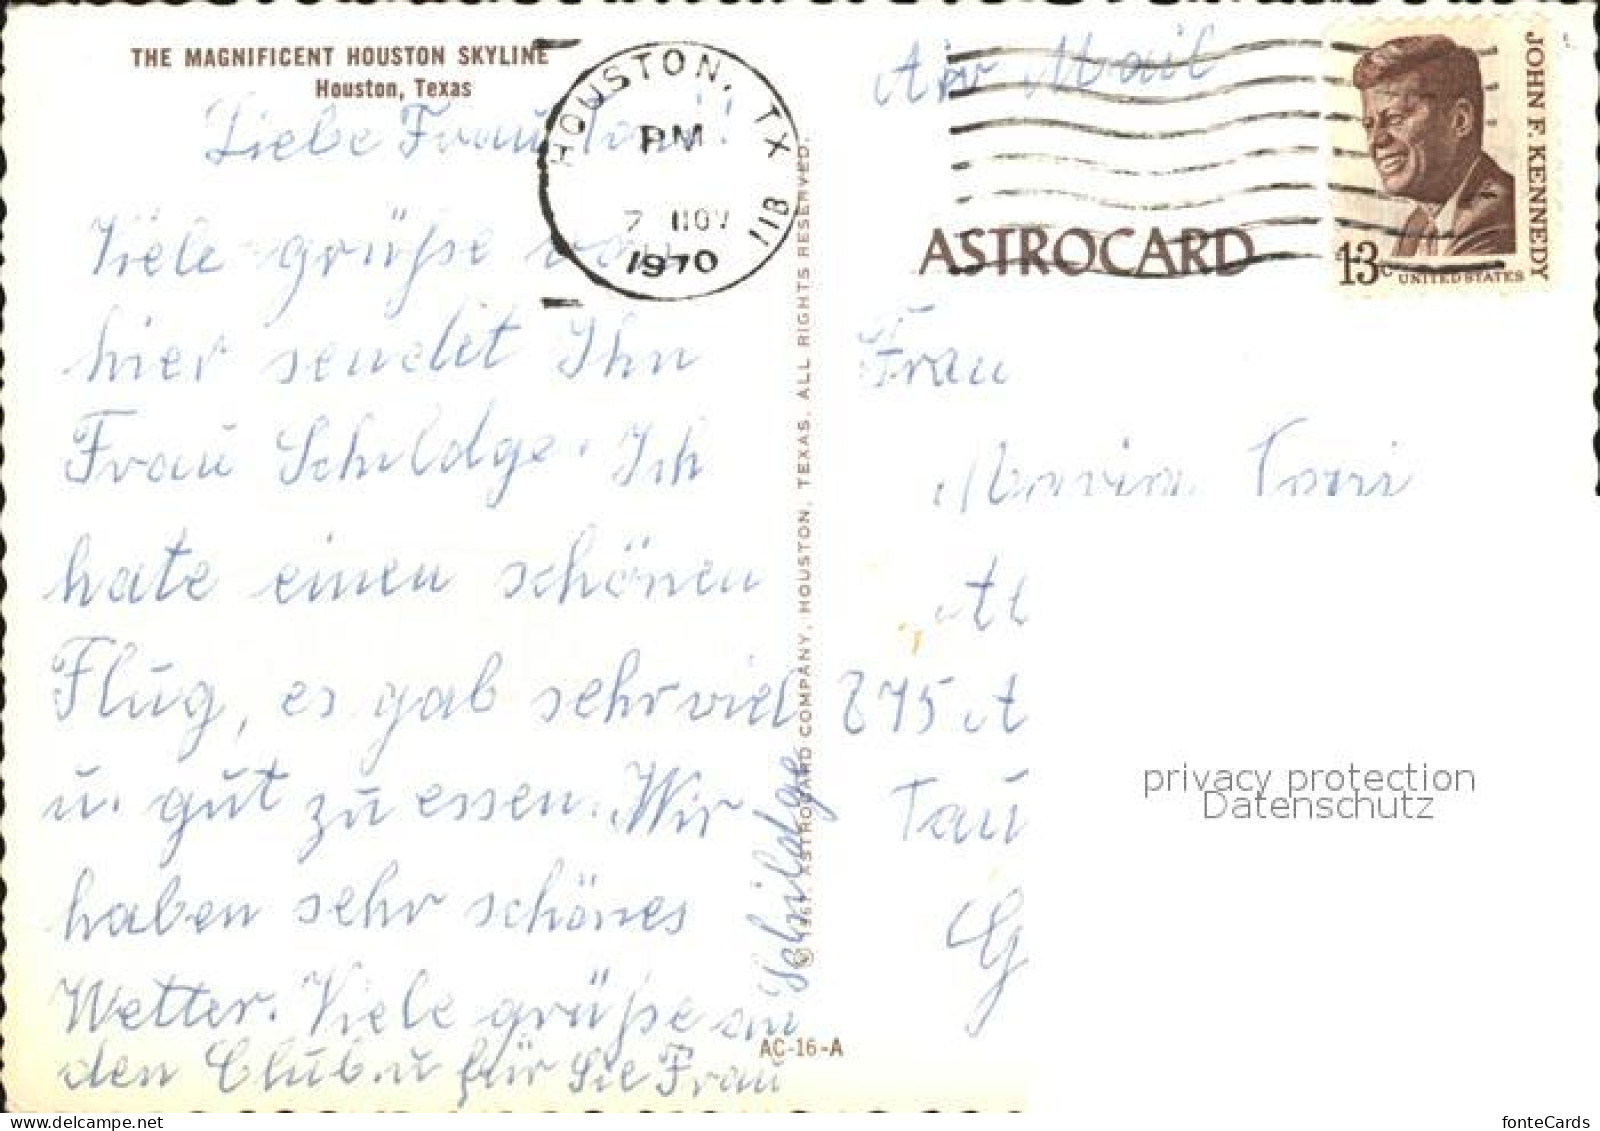 THE MAGNIFICENT HOUSTON SKYLINE
Houston, Texas
Liebe Frau
Viele grüße von
hier sendet Ihn
Frau Schildge. Ich
hate einen schönen
Flug, es gab sehr viel
u. gut zu essen. Wir
haben sehr schönes
Wetter. Viele grüße an
den Club u für Sie Frau
Schildge
HOUSTON, TX
PM
2 NOV
1970
AC-16-A
ASTROCARD COMPANY, HOUSTON, TEXAS. ALL RIGHTS RESERVED.
Air Mail
ASTROCARD
JOHN F. KENNEDY
13c
UNITED STATES
Frau
Maria
At
845 A
Tau
G
privacy protection
Datenschutz
fonteCards